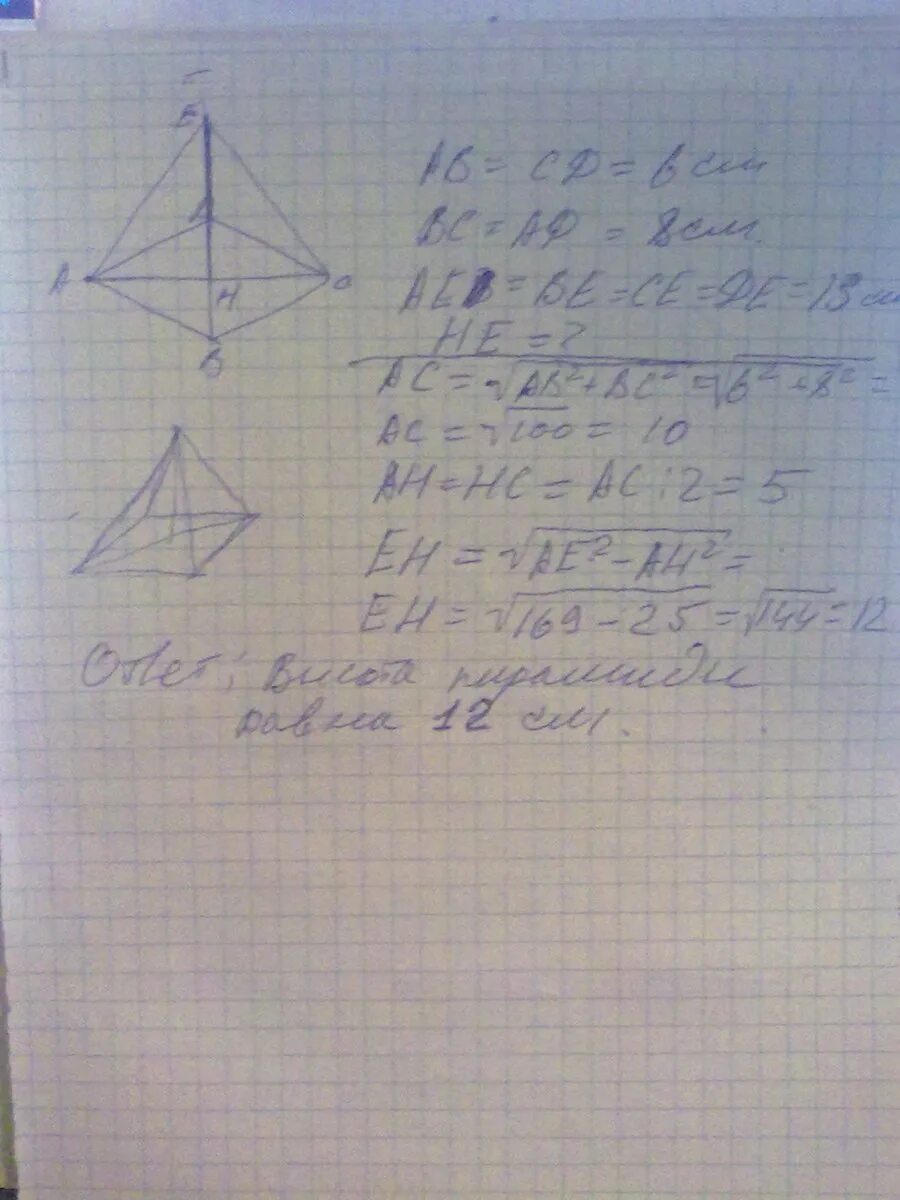 E
A
A
H
C
B
AB = CD = 6 см
BC = AD = 8 см.
AE = BE = CE = DE = 13 см
HE = ?
AC = √AB² + BC² = √6² + 8² =
AC = √100 = 10
AH = HC = AC : 2 = 5
EH = √AE² - AH² =
EH = √169 - 25 = √144 = 12
Ответ: Высота пирамиды
равна 12 см.